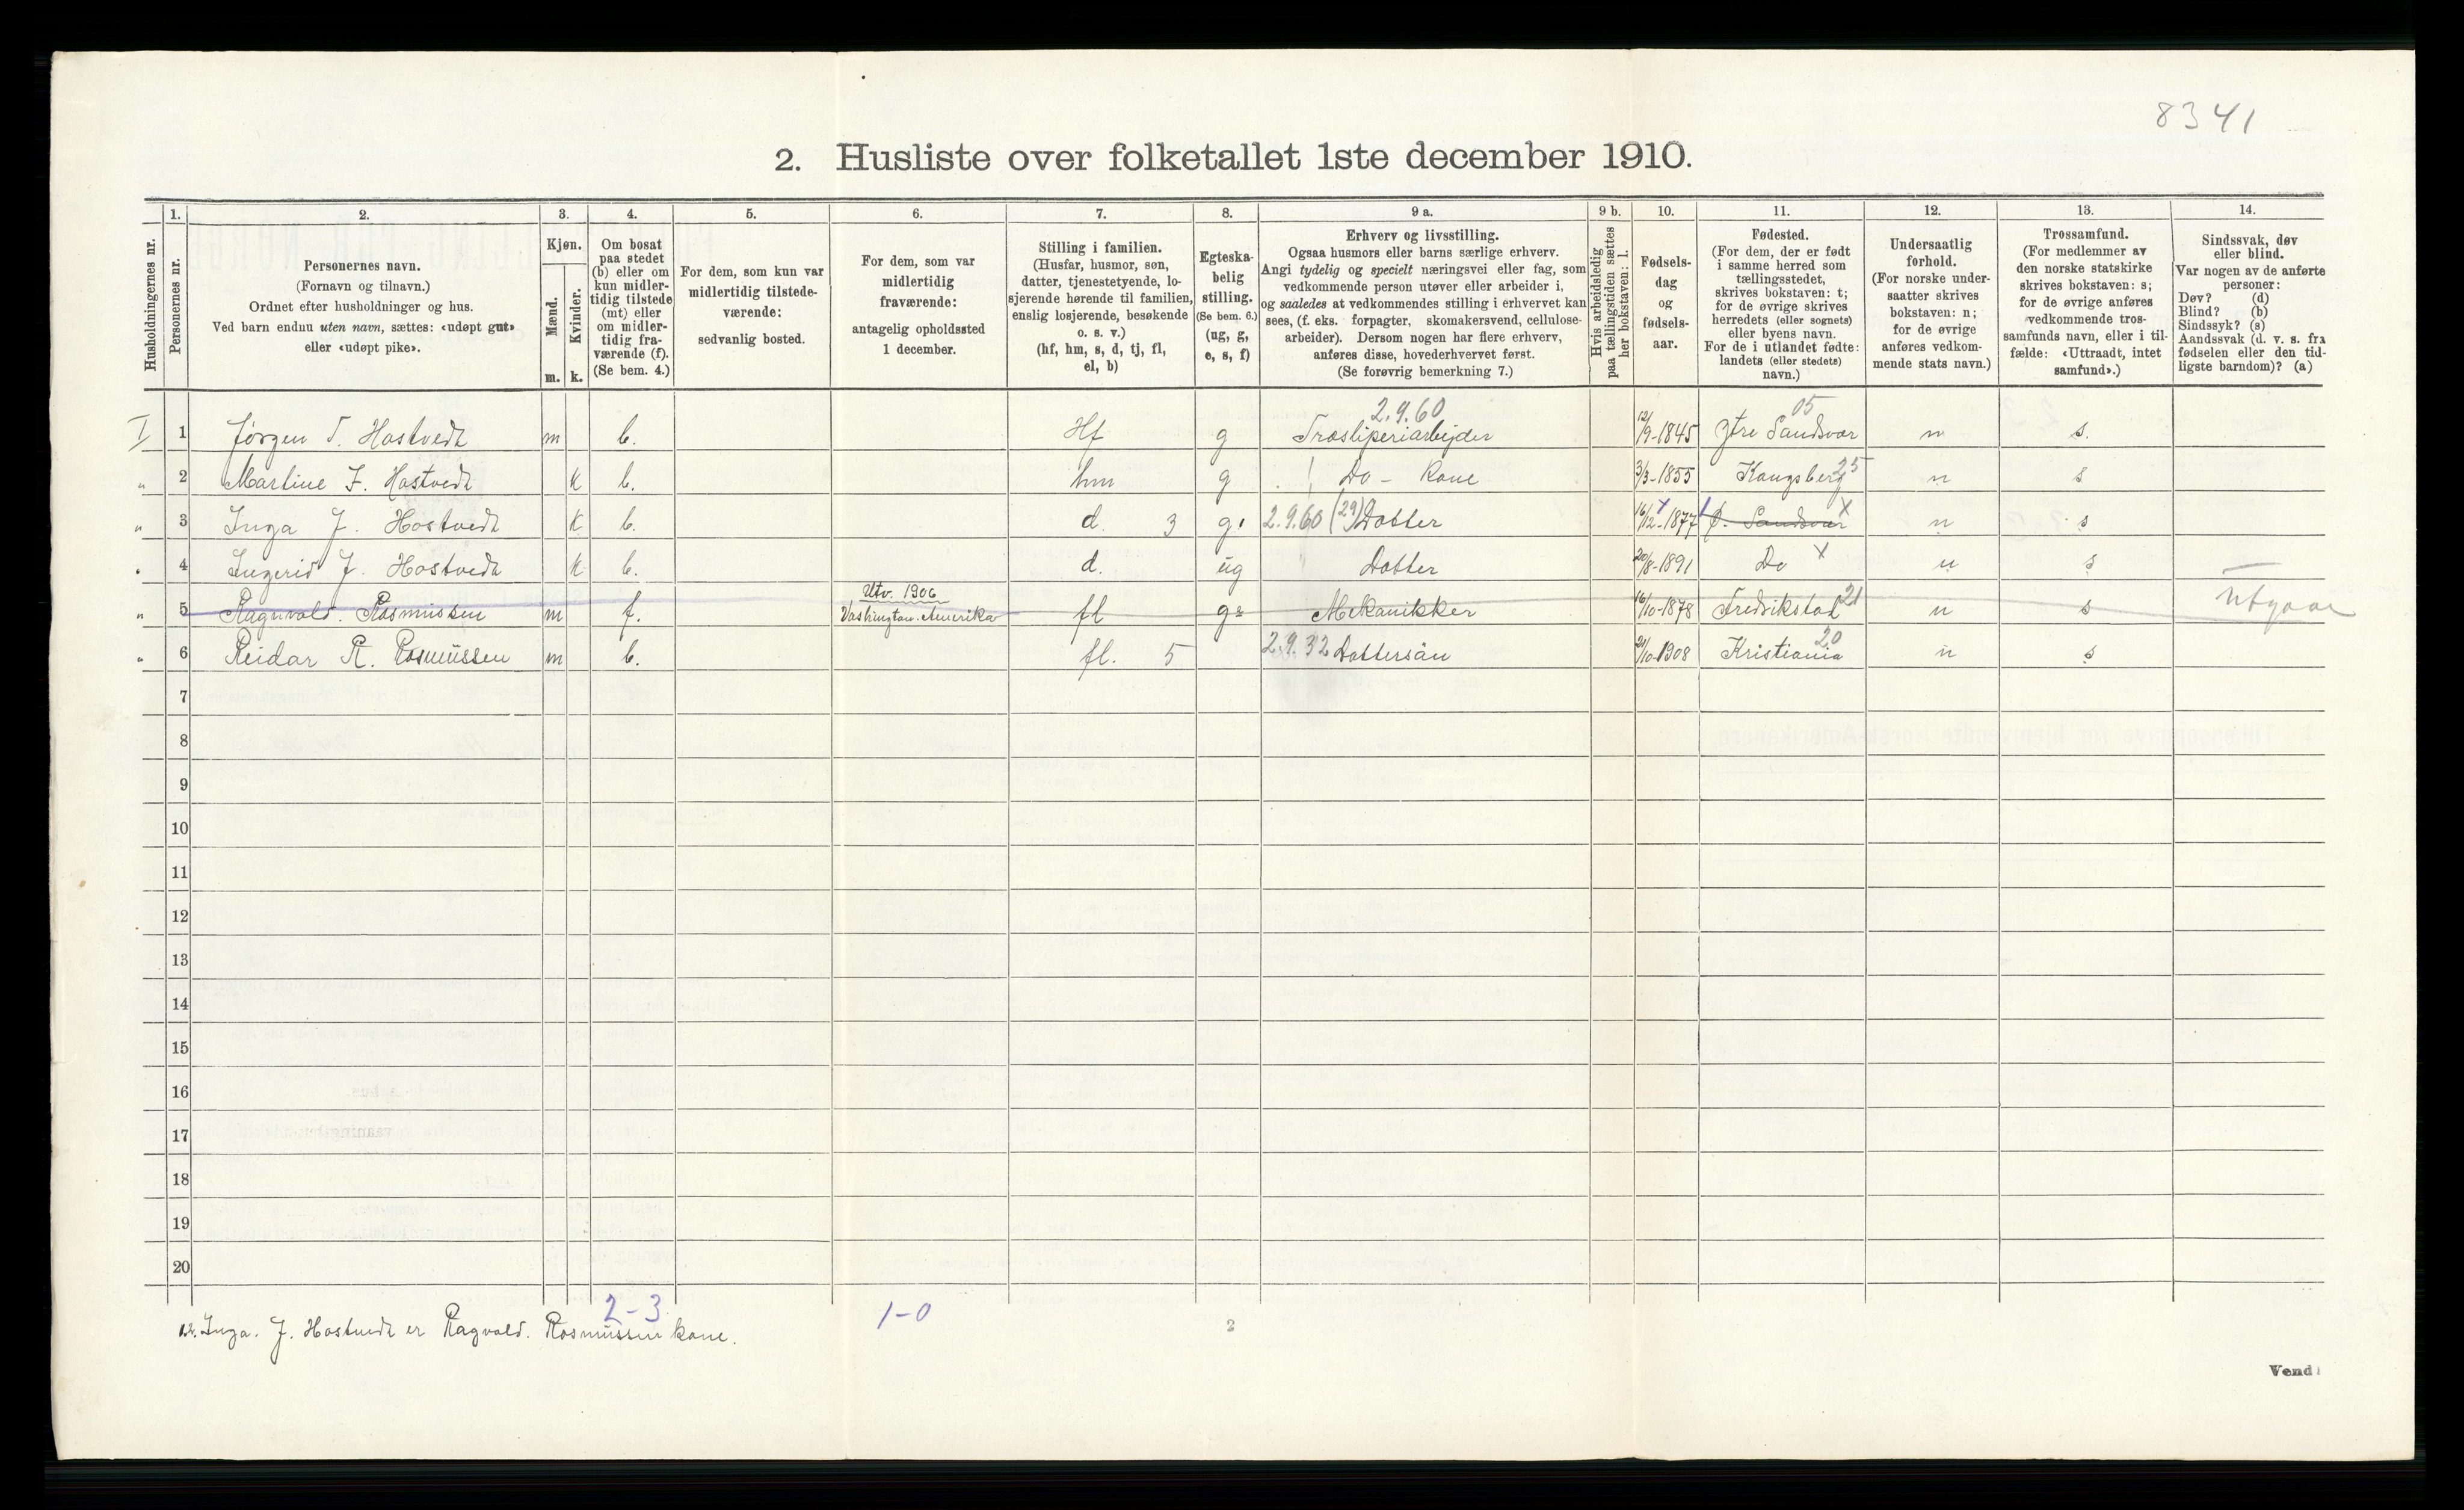 8341
2. Husliste over folketallet 1ste december 1910.
1. 2. 3. 4. 5. 6. 7. 8. 9 a. 9 b. 10. 11. 12. 13. 14.
Husholdningernes nr.
Personernes nr.
Personernes navn.
(Fornavn og tilnavn.)
Ordnet efter husholdninger og hus.
Ved barn endnu uten navn, sættes: «udøpt gut»
eller «udøpt pike».
Kjøn.
Mænd.
Kvinder.
m. k.
Om bosat
paa stedet
(b) eller om
kun midler-
tidig tilstede
(mt) eller
om midler-
tidig fra-
værende (f).
(Se bem. 4.)
For dem, som kun var
midlertidig tilstede-
værende:
sedvanlig bosted.
For dem, som var
midlertidig
fraværende:
antagelig opholdssted
1 december.
Stilling i familien.
(Husfar, husmor, søn,
datter, tjenestetyende, lo-
sjerende hørende til familien,
enslig losjerende, besøkende
o. s. v.)
(hf, hm, s, d, tj, fl,
el, b)
Egteska-
belig
stilling.
(Se bem. 6.)
(ug, g,
e, s, f)
Erhverv og livsstilling.
Ogsaa husmors eller barns særlige erhverv.
Angi tydelig og specielt næringsvei eller fag, som
vedkommende person utøver eller arbeider i,
og saaledes at vedkommendes stilling i erhvervet kan
sees, (f. eks. forpagter, skomakersvend, cellulose-
arbeider). Dersom nogen har flere erhverv,
anføres disse, hovederhvervet først.
(Se forøvrig bemerkning 7.)
Hvis arbeidsledig
paa tællingstiden sættes
her bokstaven: l.
Fødsels-
dag
og
fødsels-
aar.
Fødested.
(For dem, der er født
i samme herred som
tællingsstedet,
skrives bokstaven: t;
for de øvrige skrives
herredets (eller sognets)
eller byens navn.
For de i utlandet fødte:
landets (eller stedets)
navn.)
Undersaatlig
forhold.
(For norske under-
saatter skrives
bokstaven: n;
for de øvrige
anføres vedkom-
mende stats navn.)
Trossamfund.
(For medlemmer av
den norske statskirke
skrives bokstaven: s;
for de øvrige anføres
vedkommende tros-
samfunds navn, eller i til-
fælde: «Uttraadt, intet
samfund».)
Sindssvak, døv
eller blind.
Var nogen av de anførte
personer:
Døv? (d)
Blind? (b)
Sindssyk? (s)
Aandssvak (d. v. s. fra
fødselen eller den tid-
ligste barndom)? (a)
2.9.60 05
I 1 Jørgen T. Hostvedt m b. Hf g Træsliperiarbejder 12/9-1845 Ytre Sandsvær n s.
" 2 Martine J. Hostvedt k b. hm g Do - Kone 3/3-1855 Kongsberg 25 n s
" 3 Inga J. Hostvedt k b. d. 3 g. 2.9.60 (29) Datter 16/12-1877 Ø. Sandsvær x n s
" 4 Ingerid J. Hostvedt k b. d. ug Datter 20/8-1891 Do x n s
Utv. 1906
" 5 Ragnvald. Rasmussen m f. Vashington. Amerika fl g Mekanikker 16/10-1878 Fredrikstad 21 n s Utgaar
" 6 Reidar R. Rasmussen m b. fl. 5 2.9.32 Dattersøn 21/10-1908 Kristiania 20 n s
7
8
9
10
11
12
13
14
15
16
17
18
19
20
2-3 1-0
Inga. J. Hostvedt er Ragvald. Rasmussen kone.
2
Vend!